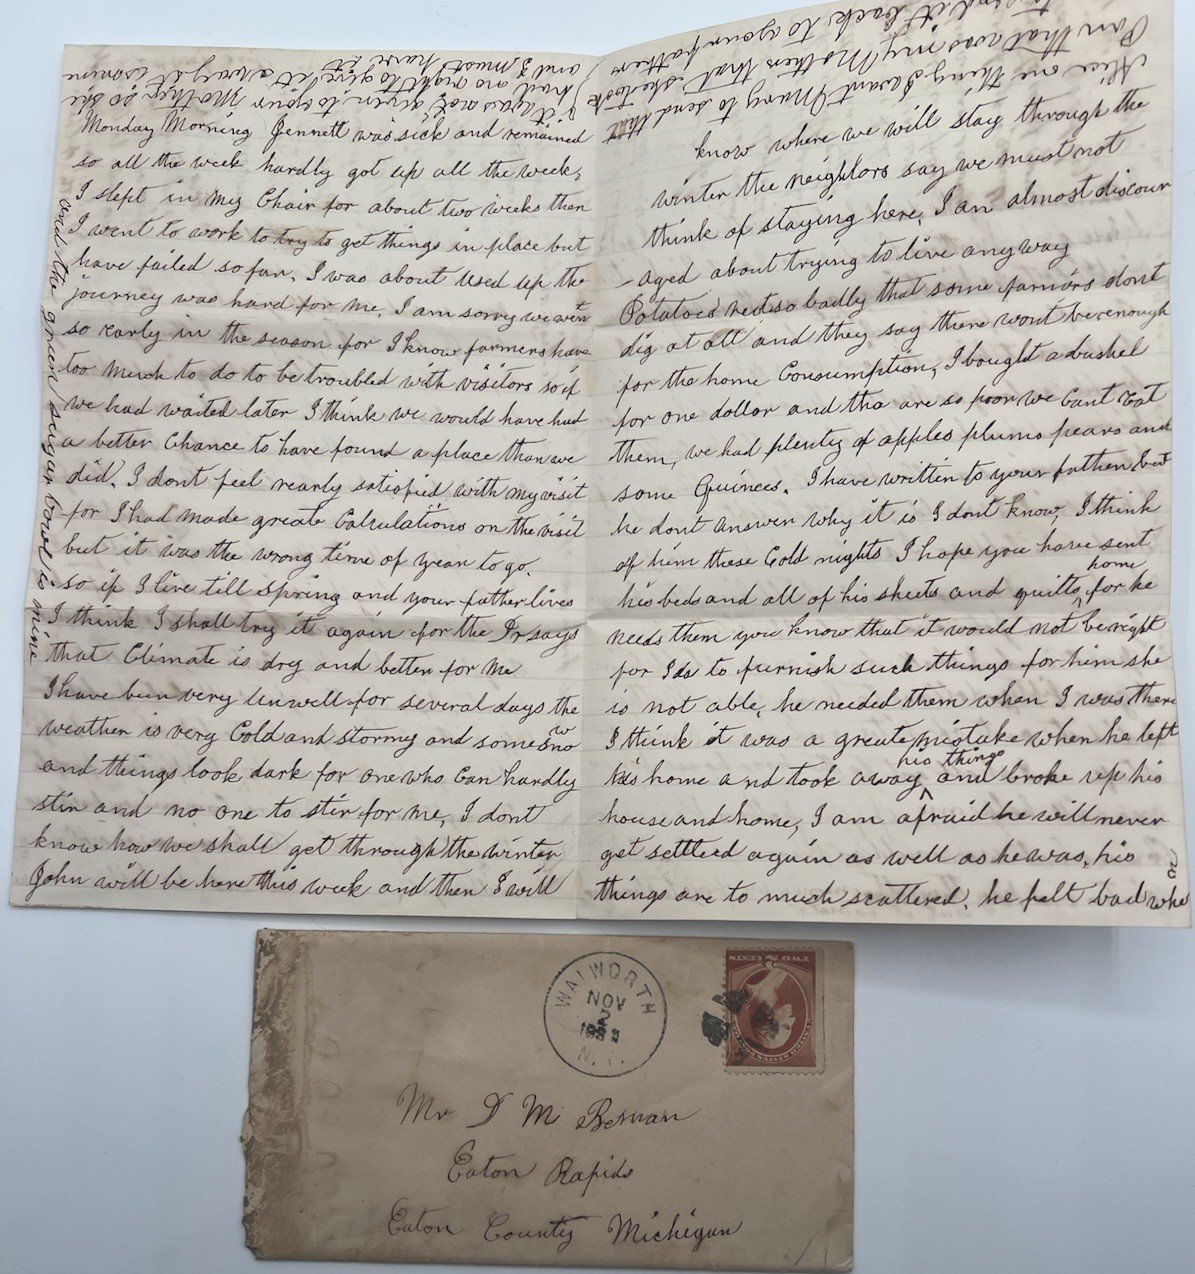 Monday Morning Jennett was sick and remained
so all the week hardly got up all the week,
I slept in my Chair for about two weeks then
I went to work to try to get things in place but
have failed so far. I was about used up the
journey was hard for me, I am sorry we went
so early in the season for I know farmers have
too much to do to be troubled with visitors so if
we had waited later I think we would have had
a better Chance to have found a place than we
did. I dont feel nearly satisfied with my visit
for I had made great Calculations on the visit
but it was the wrong time of year to go.
so if I live till spring and your father lives
I think I shall try it again for the Dr says
that Climate is dry and better for me
I have been very unwell for several days the
weather is very Cold and stormy and some snow
and things look dark for one who Can hardly
stir and no one to stir for me, I dont
know how we shall get through the winter
John will be here this week and then I will
and the green sugar bowl is mine
Alice one thing I want Mary to send that
Pan that was my Mothers that she took
to send it back to your father
it was not given to your Mother so she
had no right to give it away it is mine
and I must have it
know where we will stay through the
winter the neighbors say we must not
think of staying here, I am almost discour
-aged about trying to live anyway
Potatoes rted so badly that some farmers dont
dig at all and they say there wont be enough
for the home Consumption, I bought a bushel
for one dollar and tha are so poor we Cant Eat
them, we had plenty of apples plums pears and
some Quinces. I have written to your father but
he dont answer why it is I dont know, I think
of him these Cold nights I hope you have sent
his beds and all of his sheets and quilts home for he
needs them you know that it would not be right
for Ida to furnish such things for him she
is not able, he needed them when I was there
I think it was a great mistake when he left
his home and took away his things and broke up his
house and home, I am afraid he will never
get settled again as well as he was, his
things are to much scattered. he felt bad whe
no
WALWORTH
NOV
2
N.Y.
TWO 2 CENTS
Mr D M Beman
Eaton Rapids
Eaton County Michigan